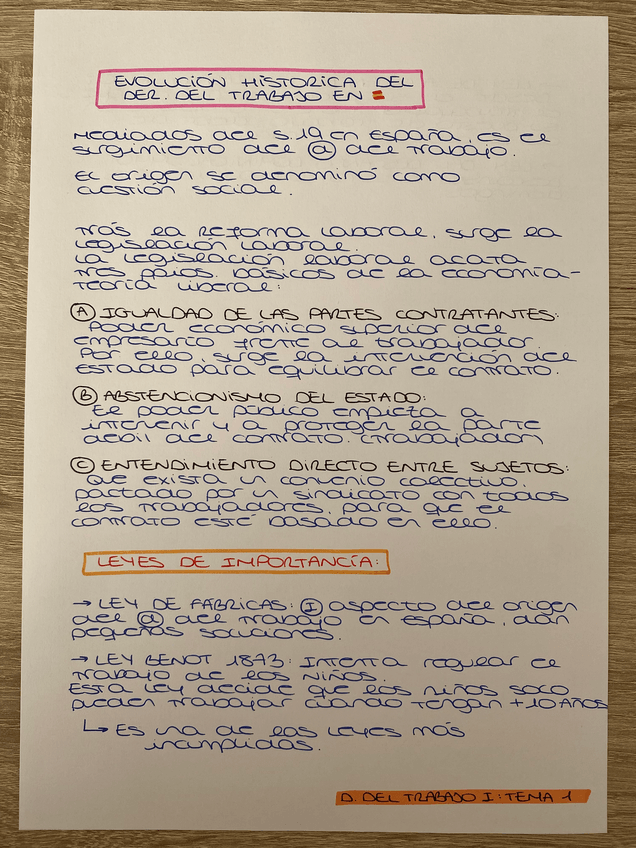 EVOLUCIÓN HISTORICA DEL
DER. DEL TRABAJO EN 🇪🇸
Mediados del S.19 en España, es el
surgimiento del ⓓ del trabajo.
El origen se denominó como
cuestión social.
Trás la Reforma laboral, surge la
legislación laboral.
La legislación laboral acata
tres ppios. básicos de la economía-
teoría liberal:
Ⓐ IGUALDAD DE LAS PARTES CONTRATANTES:
Poder económico superior del
empresario frente al trabajador.
Por ello, surge la intervención del
Estado para equilibrar el contrato.
Ⓑ ABSTENCIONISMO DEL ESTADO:
El poder público empieza a
intervenir y a proteger la parte
debil del contrato. (trabajador)
Ⓒ ENTENDIMIENTO DIRECTO ENTRE SUJETOS:
Que exista un convenio colectivo,
pactado por un sindicato con todos
los trabajadores, para que el
contrato esté basado en ello.
LEYES DE IMPORTANCÍA:
→ LEY DE FÁBRICAS: ① aspecto del origen
del ⓓ del trabajo en España, dan
pequeñas soluciones.
→ LEY BENOT 1873: Intenta regular el
trabajo de los niños.
Esta ley decide que los niños solo
pueden trabajar cuando tengan +10 AÑOS
↳ Es una de las leyes más
incumplidas.
D. DEL TRABAJO I: TEMA 1